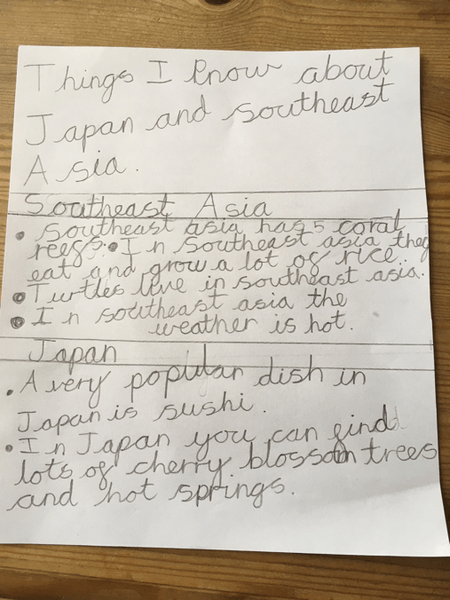 Things I know about
Japan and southeast
Asia.
Southeast Asia
• Southeast asia has 5 coral
reefs. • In southeast asia they
eat and grow a lot of rice.
• Turtles live in southeast asia.
• In southeast asia the
weather is hot.
Japan
• A very popular dish in
Japan is sushi.
• In Japan you can find
lots of cherry blossom trees
and hot springs.